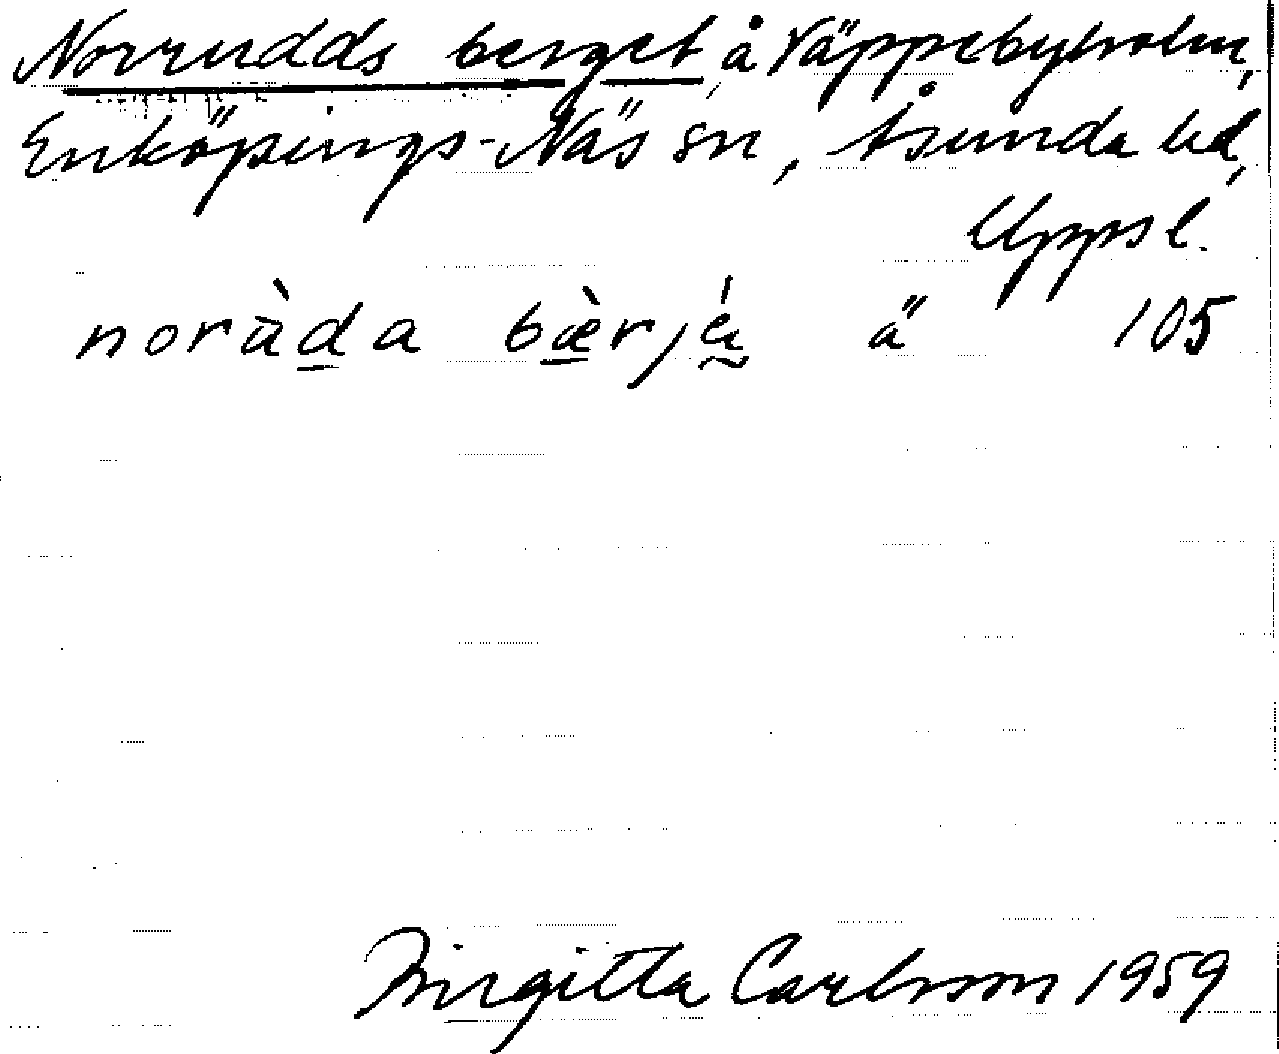 Norrudds berget, å Väppebyholm,
Enköpings-Näs sn, Åsunda hd,
Uppsl.
noràda bæ̀rjá ä 105
Birgitta Carlsson 1959